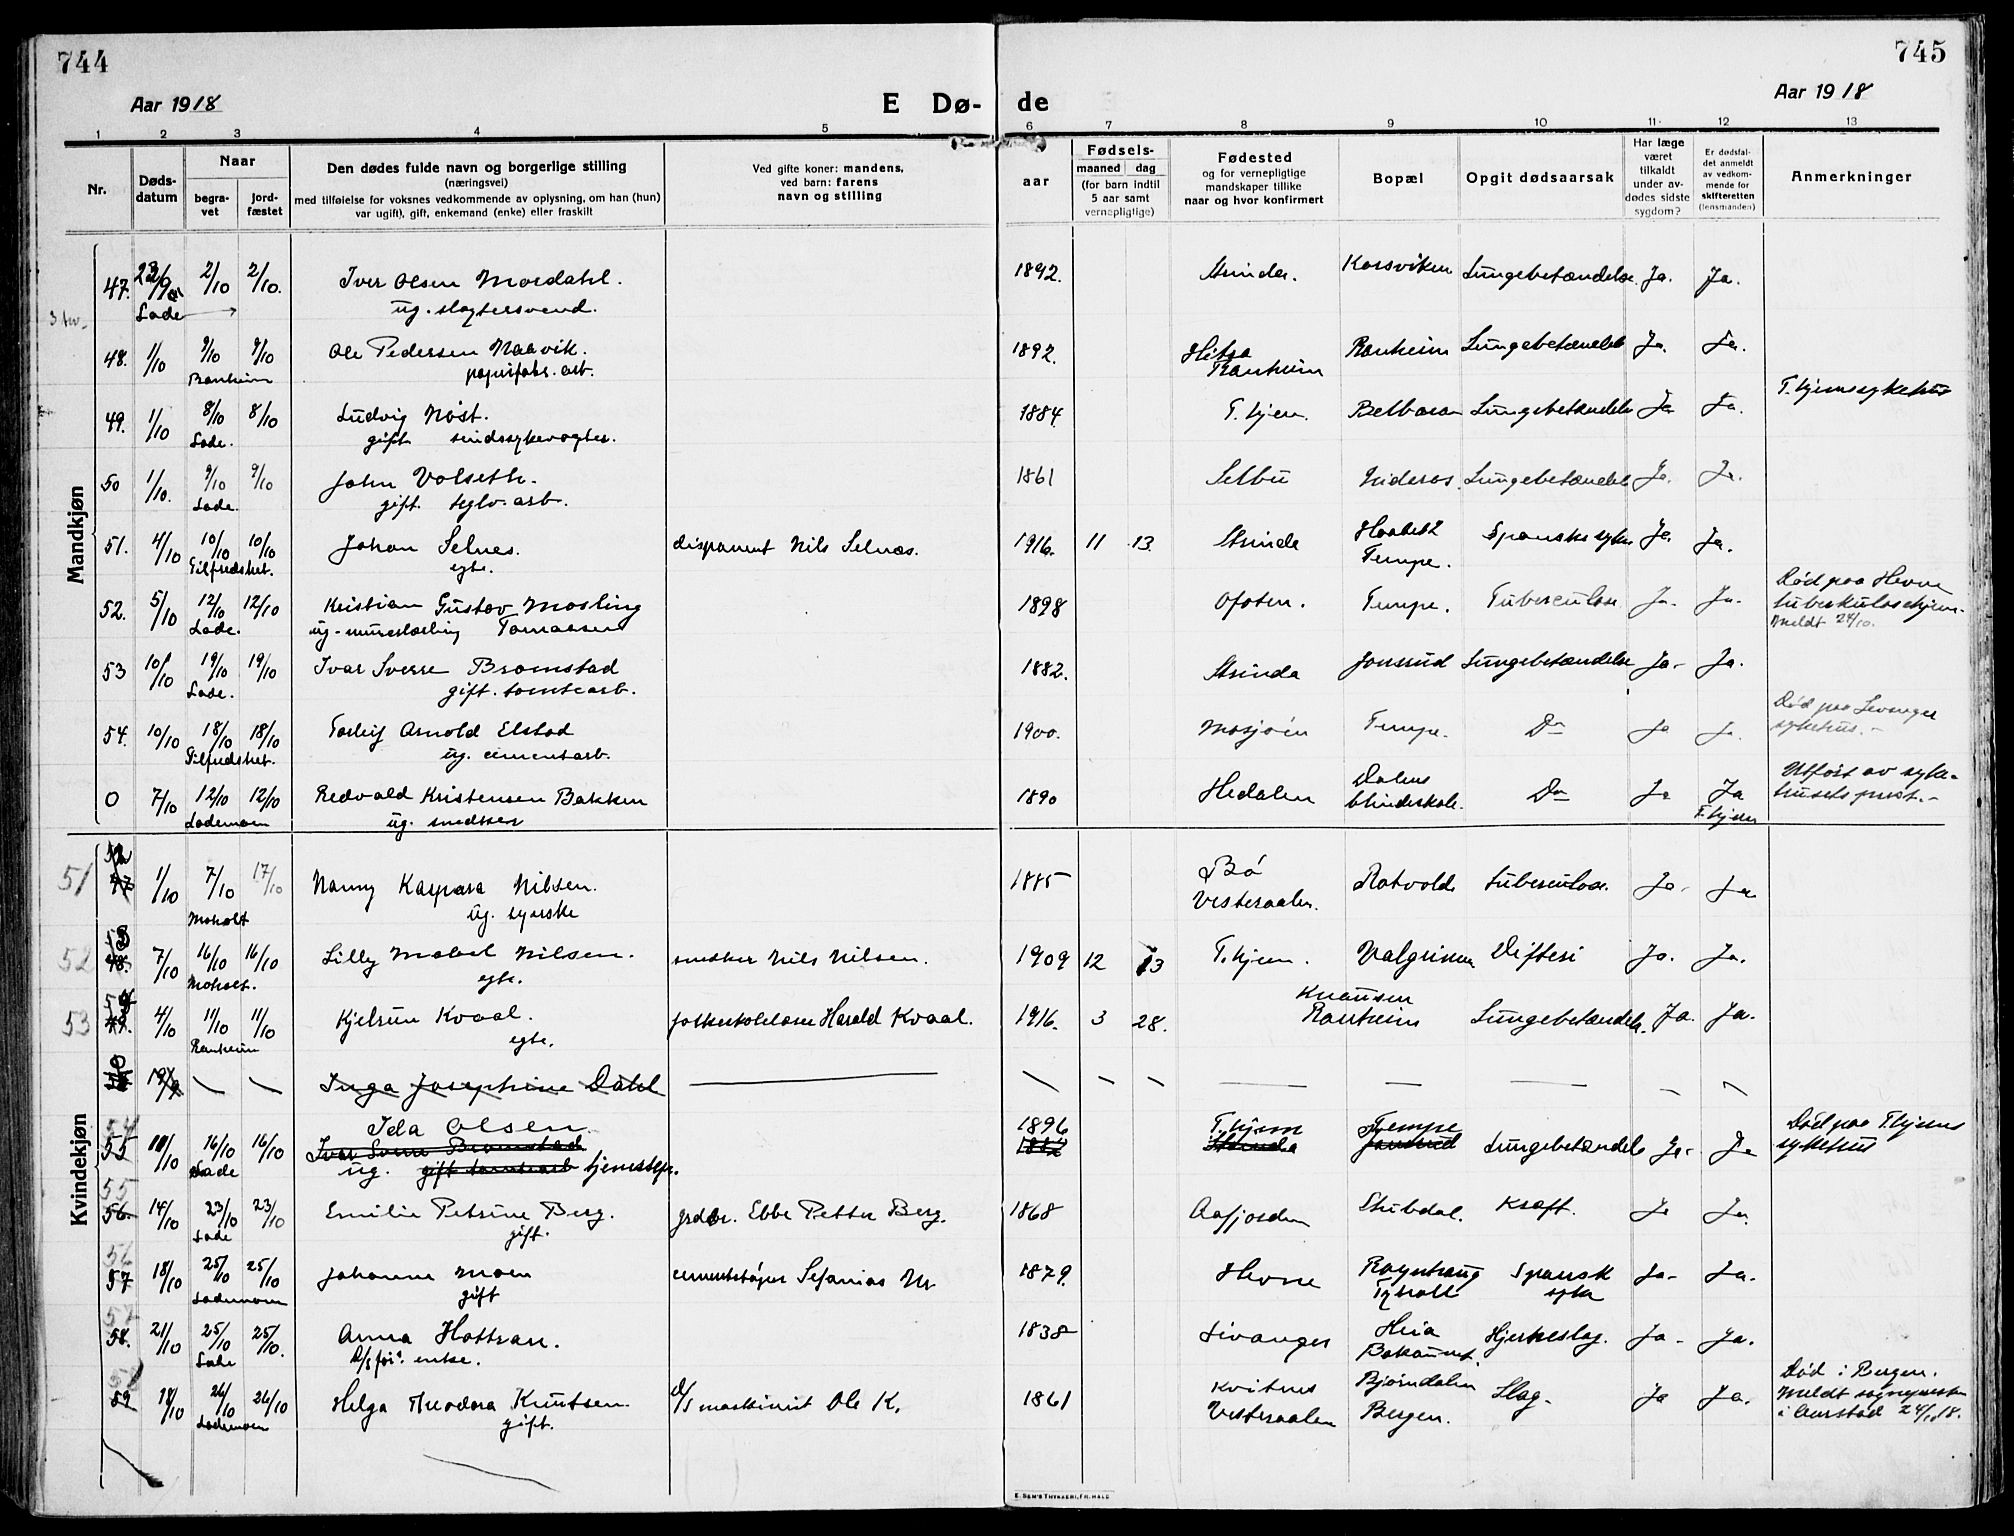 744
745
Aar 1918
E Dø-
de
Aar 1918
1 2 3 4 5 6 7 8 9 10 11 12 13
Nr.
Døds-
datum
Naar
begra-
vet
jord-
fæstet
Den dødes fulde navn og borgerlige stilling
(næringsvei)
med tilføielse for voksnes vedkommende av oplysning, om han (hun)
var ugift), gift, enkemand (enke) eller fraskilt
Ved gifte koner: mandens,
ved barn: farens
navn og stilling
aar
Fødsels-
maaned dag
(for barn indtil
5 aar samt
vernepligtige)
Fødested
og for vernepligtige
mandskaper tillike
naar og hvor konfirmert
Bopæl
Opgit dødsaarsak
Har læge
været
tilkaldt
under av-
dødes sidste
sygdom?
Er dødsfal-
det anmeldt
av vedkom-
mende for
skifteretten
(lensmanden)
Anmerkninger
Mandkjøn
47. 2/10 2/10. Iver Olsen Mordahl. 1892. Strinda. Korsviken Lungebetændelse. Ja. Ja.
Lade ug. slagtersvend.
48. 1/10 9/10 9/10 Ole Pedersen Naavik. 1892. Hitra Ranheim Lungebetændel Ja. Ja.
Ranheim papirfabr. arb. Ranheim
T.hjems sykehus
49. 1/10 8/10 8/10 Ludvig Nøst. 1884. T.hjem. Lungebetændelse Ja Ja.
Lade. gift. sindssykevogter.
50 1/10. 9/10 9/10 John Volseth. 1861 Selbu Nideros. Lungebetændel Ja. Ja.
Lade. gift. teglv. arb.
51. 4/10 10/10 10/10 Johan Selnes. disponent Nils Selnæs. 1916. 11 13. Strinda Spanske syke Ja. Ja.
Tilfredshet. egte. Tempe.
52. 5/10 12/10 12/10 Kristian Gustav Mosling 1898 Ofoten. Tempe. Tuberculose Ja. Ja. Død paa Hevne
Lade. ug. murerlærling Tomassen tuberkulosehjem.
Meldt 24/10.
53 10/10 19/10 19/10 Ivar Sverre Bromstad 1882. Strinda Jonsrud Lungebetændelse Ja. Ja.
Lade. gift. tomtearb.
54. 10/10 18/10 18/10 Torleif Arnold Elstad 1900. Mosjøen Tempe. Do Ja Ja. Død paa Levanger
Tilfredshet. ug. cementarb. sykehus.
0 7/10 12/10 12/10 Redvald Kristensen Bakken 1890 Hedalen Dalens blindeskole. Do Ja Ja Utført av syke-
Lademoen ug. snedker T.hjem husets prest.
Kvindekjøn
51 1/10 7/10 17/10 Nanny Kaspara Nilsen. 1885 Bø Rotvold tuberculose. Ja. Ja
Moholt ug. syerske Vesteraalen.
52 7/10 16/10 16/10 Lilly Mabel Nilsen. snedker Nils Nilsen. 1909 12 13 T.hjem. Valgrinna Difteri Ja. Ja.
Moholt. egte.
53 4/10 11/10 11/10 Kjelrun Kvaal. folkeskolelærer Harald Kvaal. 1916. 3 28. Knausen Lungebetændelse. Ja. Ja.
Ranheim egte. Ranheim
Inga Josephine Dahl
54 Ida Olsen 1896 T.hjem Tempe Død paa T.hjems
55 10/10 16/10 16/10 Ivar Sverre Bromstad 1882 Strinda Jonsrud Lungebetændelse Ja. Ja sykehus
Lade ug. gift tomtearb tjenestepi.
55
56. 14/10 23/10 23/10 Emilie Petrine Berg. grdbr. Ebbe Petter Berg. 1868 Aafjorden Stubdal. Kræft. Ja Ja.
Lade gift.
56
57 18/10 25/10 25/10 Johanne Moen Sefanias M. 1879. Hevne Spansk Ja. Ja.
Lademoen gift Tyholt syke
57
58. 21/10 25/10 25/10. Anna Hottran. 1838 Levanger Hjerteslag. Ja. Ja.
Lade enke. Bakaunet.
59 18/10 26/10 26/10 Helga Theodora Knutsen. maskinist Ole K. 1861 Kvitnes Bjørndalen Slag. Ja Ja. Død i Bergen.
Lademoen gift. Vesteraalen Bergen. Meldt sogneprest
24/10 18.
E. SEM'S TRYKKERI, FR.HALD